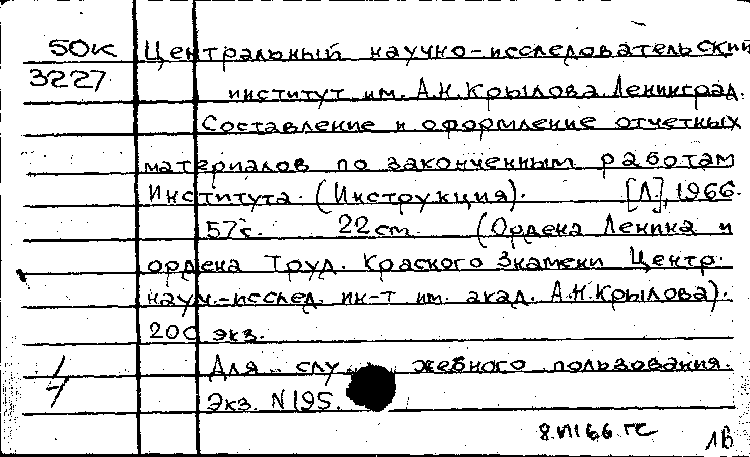 50к Центральный научно-исследовательский
3227 институт им. А.Н.Крылова. Ленинград.
Составление и оформление отчетных
материалов по законченным работам
Института. (Инструкция). [Л], 1966.
57с. 22 см. (Ордена Ленина и
ордена Труд. Краского Знамени Центр.
научн.-исслед. ин-т им. акад. А.Н.Крылова).
200 экз.
Для служебного пользования.
Экз. N195.
8.VII 66. ГС
1В